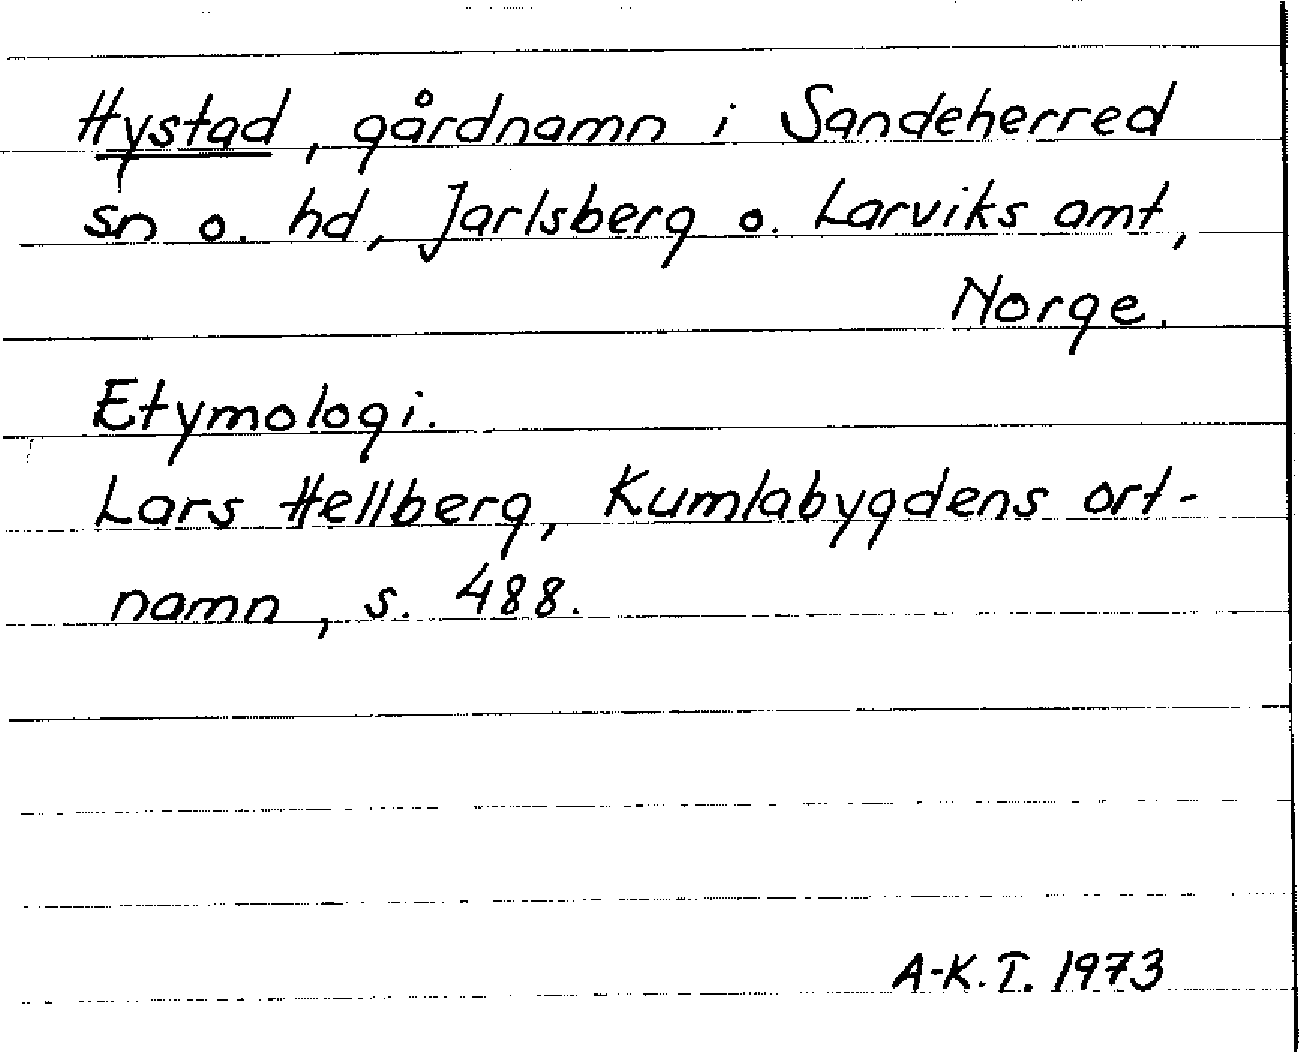 Hystad, gårdnamn i Sandeherred
sn o. hd, Jarlsberg o. Larviks amt,
Norge.
Etymologi.
Lars Hellberg, Kumlabygdens ort-
namn, s. 488.
A-K. T. 1973